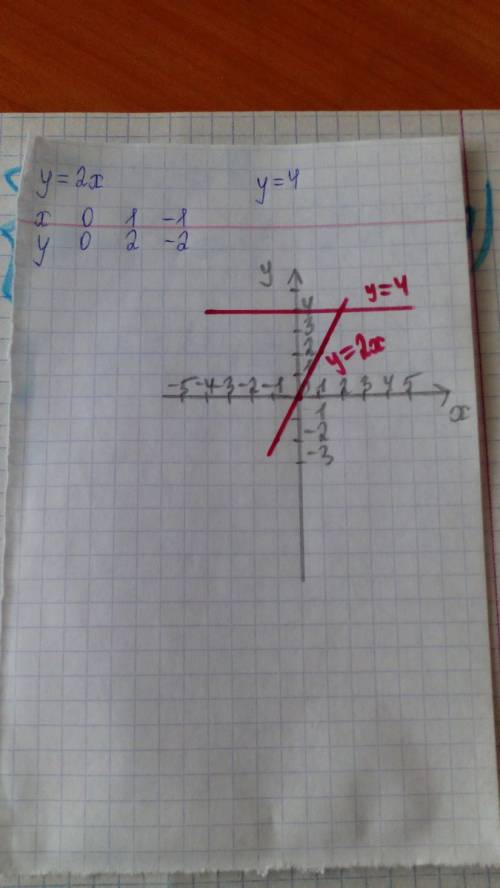 y = 2x
y = 4
x 0 1 -1
y 0 2 -2
y
y = 4
4
3
2
1
y = 2x
-5 -4 -3 -2 -1 1 2 3 4 5
x
-1
-2
-3